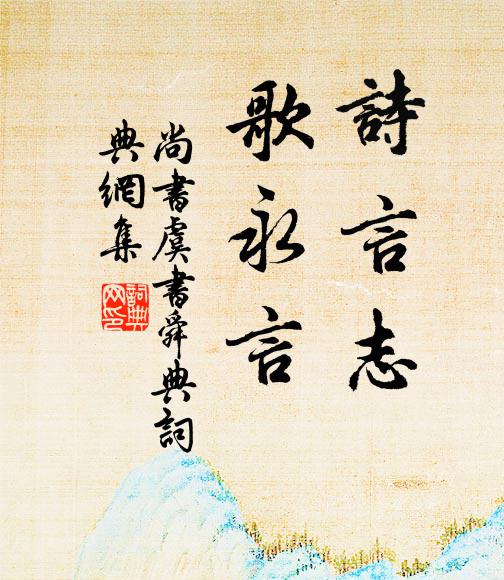 詩言志
歌永言
尚書虞書舜典詞
典網集
詞典網印